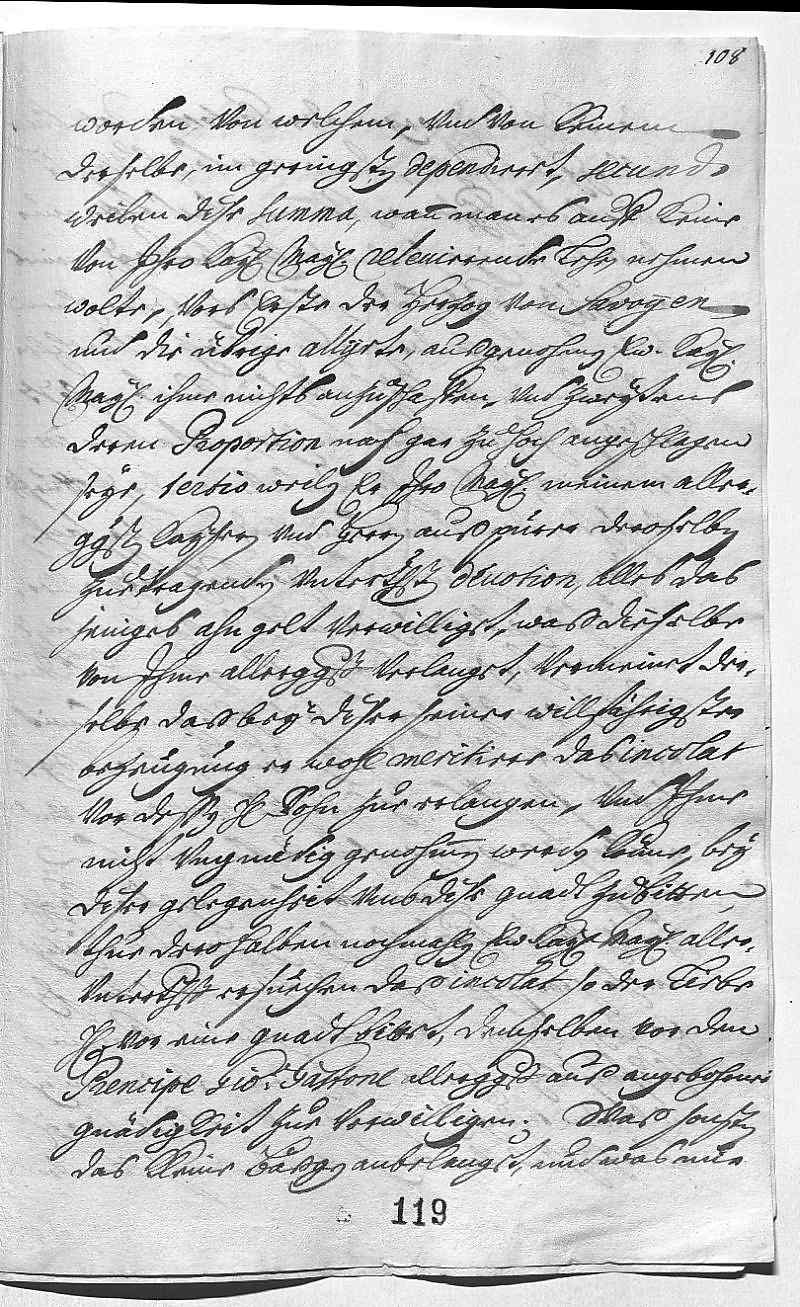 108
worden von welchem, und von keinem
derselbe, im geringsten dependirert, secundo
weilen dise summa, wan man es auch keine
von Ihro Kayl. Mayl. relevierende Lehen nehmen
wolte, vors Erste der Herzog von Savoyen
und die übrige alliirte, ausgenohmen Ew. Kayl.
Mayl. ihme nichts anzuschaffen, und zweytens
deren Proportion nach gar zu hoch angeschlagen
seye, tertio weilen Er Ihro Mayl. meinem aller-
ggsten Kaysern und Herrn aus purer deroselben
zutragenden unterthsten devotion, alles das
jeniges ahn gelt verwilliget, was dieselbe
von Ihme allerggst verlanget, vermeinet der-
selbe das bey diser seiner willfährigsten
bezeugung er wohl meritirte das incolat
vor dessen H. Sohn zu erlangen, und Ihme
nicht ungnädig genohmen werden könne, bey
diser gelegenheit umb dise gnadt zu bitten,
thue derohalben nochmahlen Ew. Kayl. Mayl. aller-
unterthst ersuchen das incolat so der
H. vor eine gnadt bittet, demselben vor den
Prencipe Gio: Gastone allerggst aus angebohrner
gnädigkeit zu verwilligen. Was sonsten
das kleine anbelanget, und was mir
119